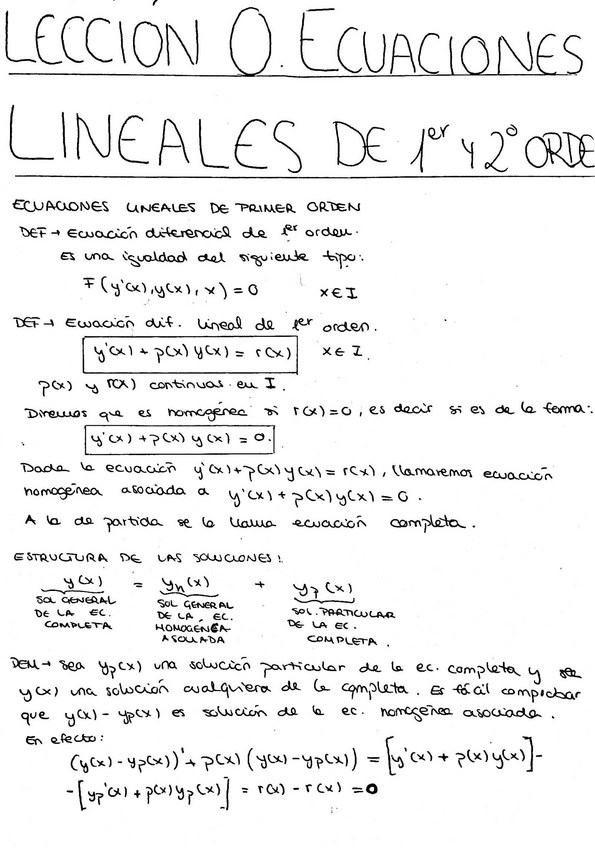 LECCION 0. ECUACIONES
LINEALES DE 1er Y 2º ORDE
ECUACIONES LINEALES DE PRIMER ORDEN
DEF → Ecuación diferencial de 1er orden.
Es una igualdad del siguiente tipo:
F(y'(x), y(x), x) = 0 x ∈ I
DEF → Ecuación dif. lineal de 1er orden.
y'(x) + p(x) y(x) = r(x) x ∈ I.
p(x) y r(x) continuas en I.
Diremos que es homogénea si r(x) = 0, es decir si es de la forma:
y'(x) + p(x) y(x) = 0.
Dada la ecuación y'(x) + p(x) y(x) = r(x), llamaremos ecuación
homogénea asociada a y'(x) + p(x) y(x) = 0.
A la de partida se la llama ecuación completa.
ESTRUCTURA DE LAS SOLUCIONES:
y(x) = yh(x) + yp(x)
SOL GENERAL DE LA EC. COMPLETA
SOL GENERAL DE LA EC. HOMOGENEA ASOCIADA
SOL. PARTICULAR DE LA EC. COMPLETA.
DEM → Sea yp(x) una solución particular de la ec. completa y
y(x) una solución cualquiera de la completa. Es fácil comprobar
que y(x) - yp(x) es solución de la ec. homogénea asociada.
En efecto:
(y(x) - yp(x))' + p(x) (y(x) - yp(x)) = [y'(x) + p(x) y(x)] -
- [yp'(x) + p(x) yp(x)] = r(x) - r(x) = 0